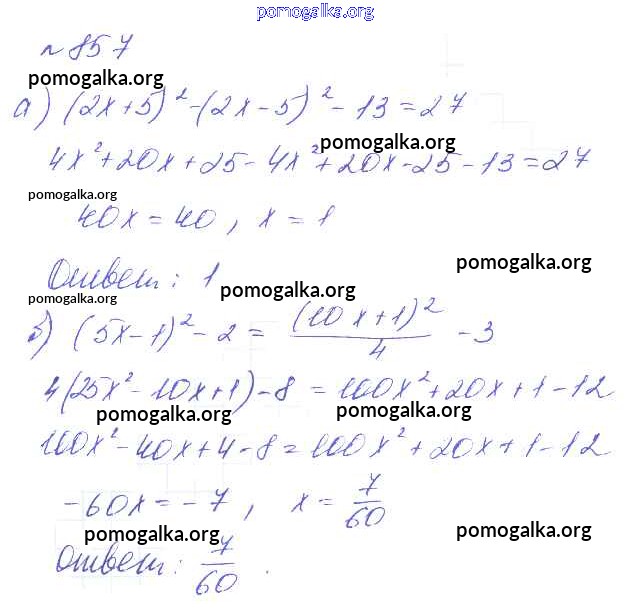 pomogalka.org
№857
pomogalka.org
а) (2x+5)² - (2x-5)² - 13 = 27
pomogalka.org
4x² + 20x + 25 - 4x² + 20x - 25 - 13 = 27
pomogalka.org
40x = 40, x = 1
pomogalka.org
Ответ: 1
pomogalka.org
pomogalka.org
б) (5x-1)² - 2 = (10x+1)²/4 - 3
4(25x² - 10x + 1) - 8 = 100x² + 20x + 1 - 12
pomogalka.org pomogalka.org
100x² - 40x + 4 - 8 = 100x² + 20x + 1 - 12
-60x = -7, x = 7/60
pomogalka.org pomogalka.org
Ответ: 7/60.